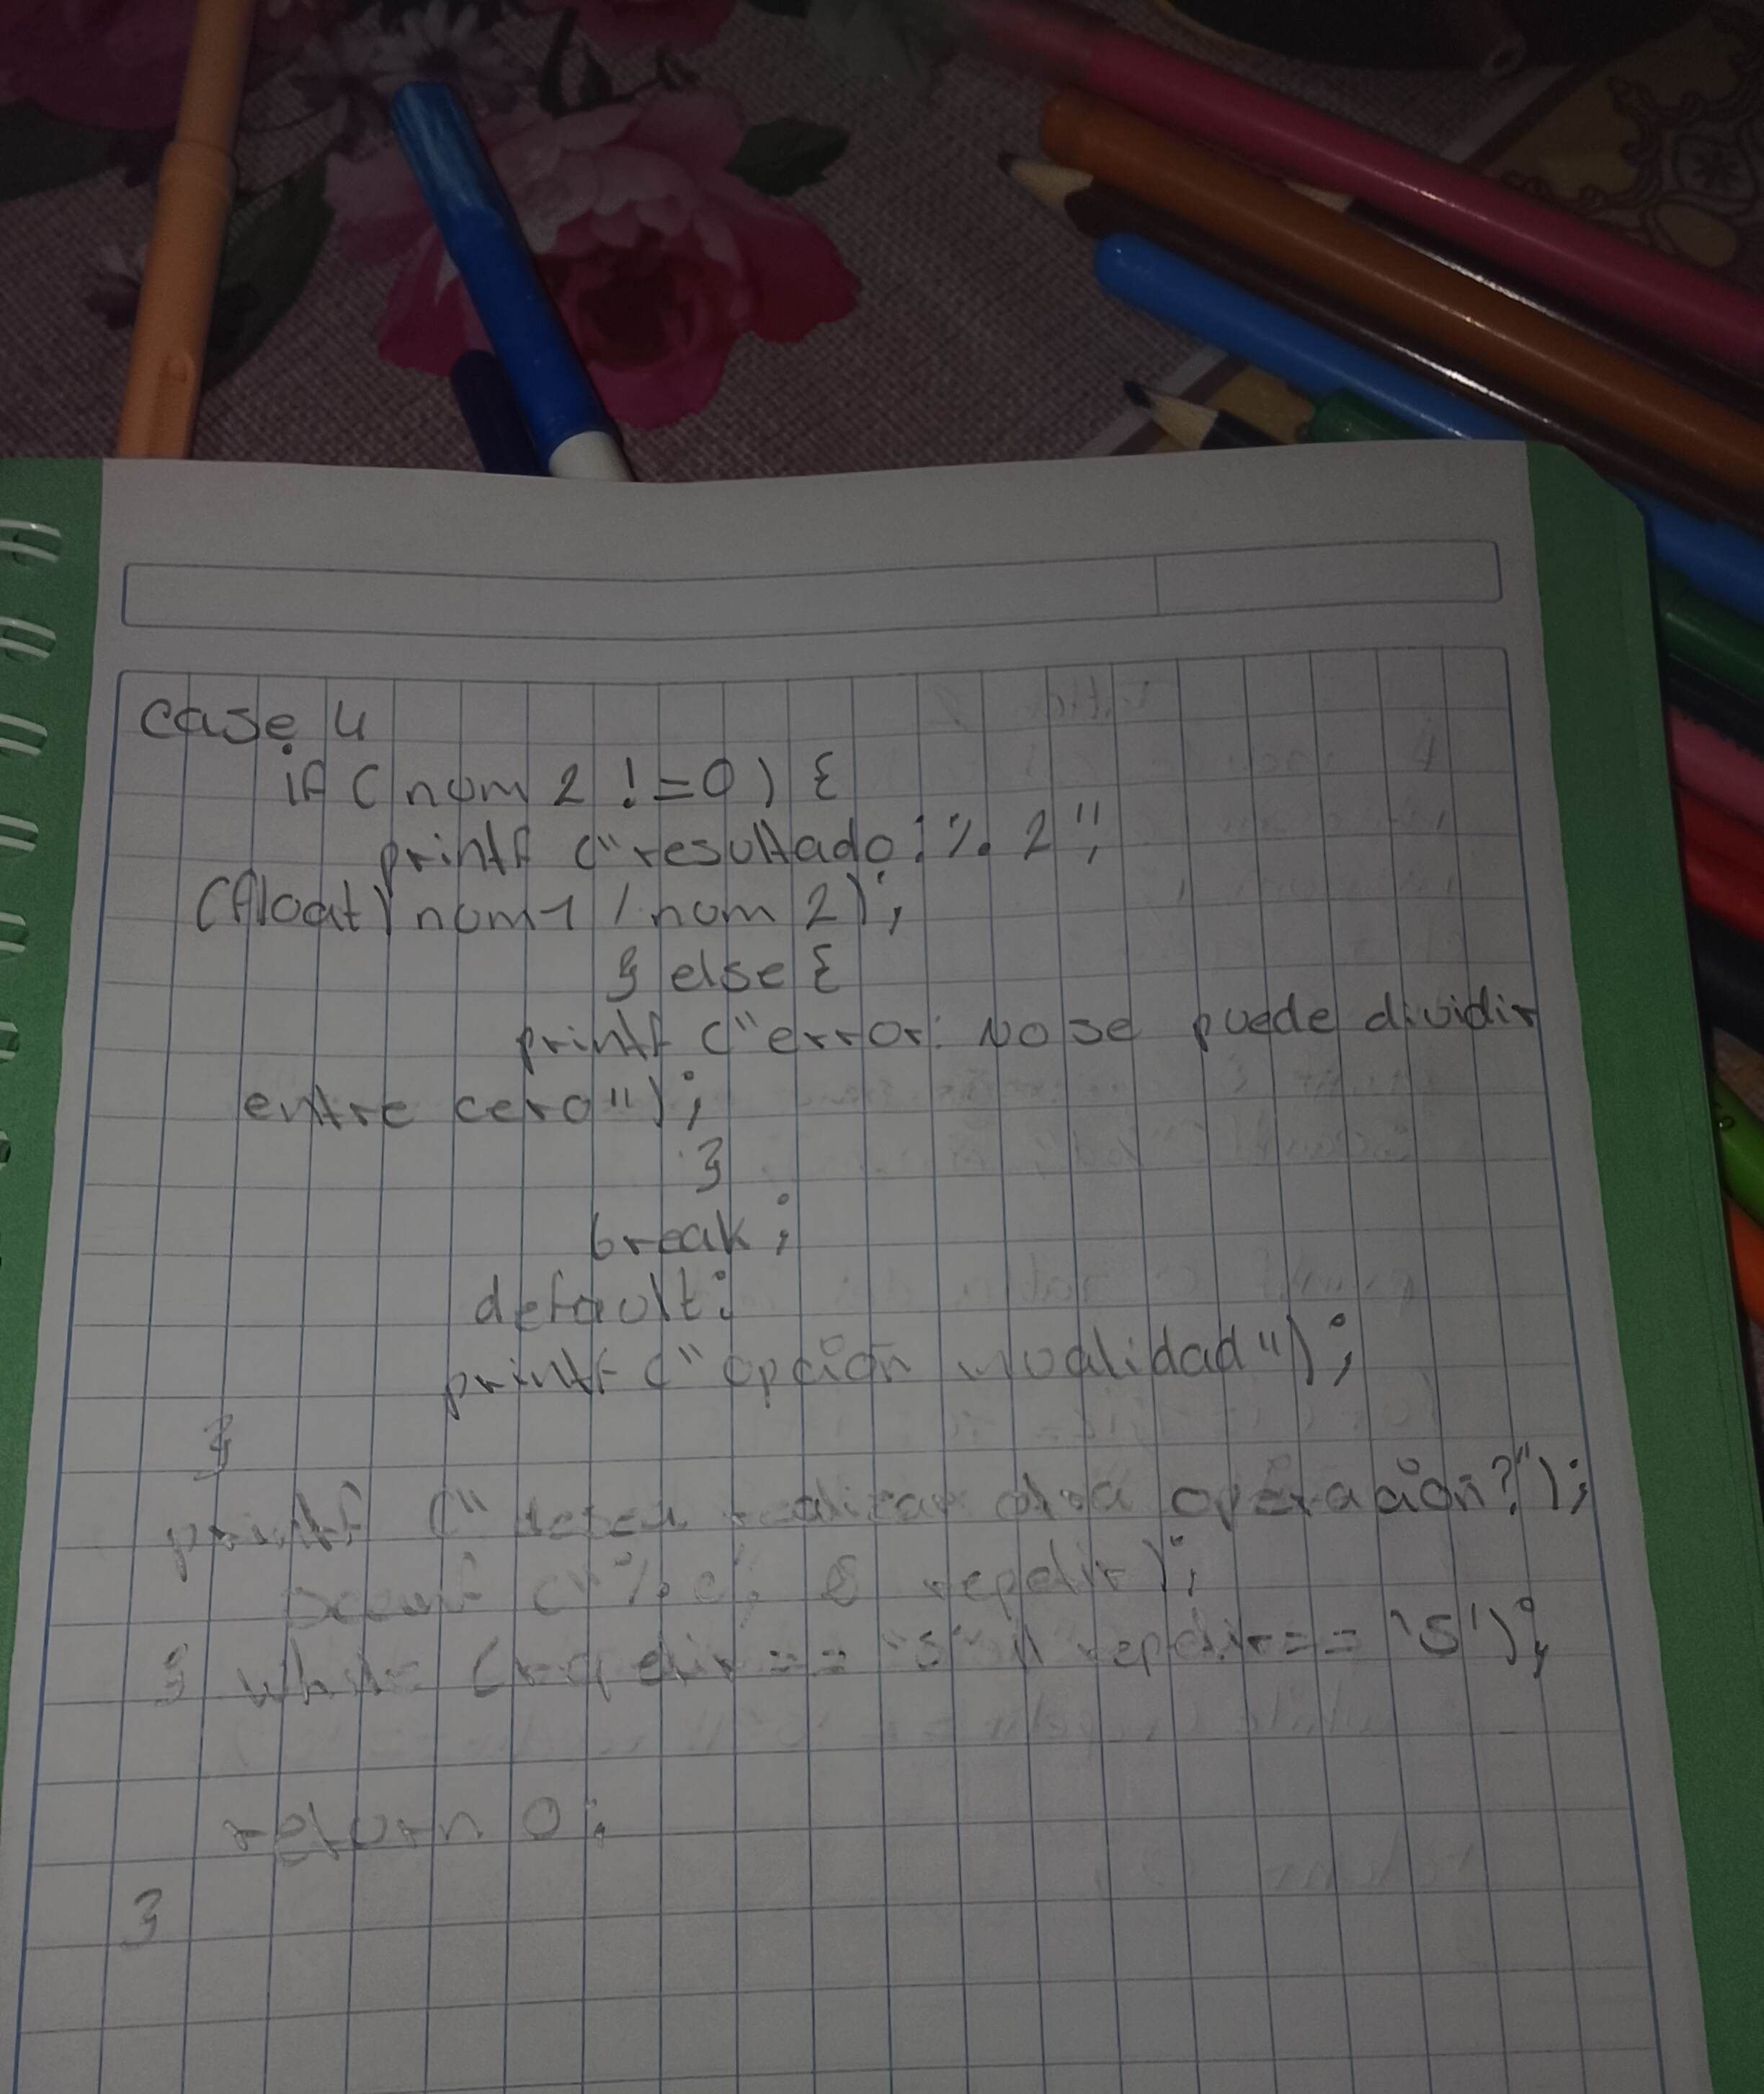 case 4
if ( num 2 != 0 ) {
printf ("resultado: %. 2",
(float) num 1 / num 2);
} else {
printf ("error: No se puede dividir
entre cero");
}
break;
default:
printf ("opción invalidad");
}
printf (" desea realizar otra operación?");
scanf ("%c", & repetir);
} while (repetir == 's' || repetir == 'S');
return 0;
}